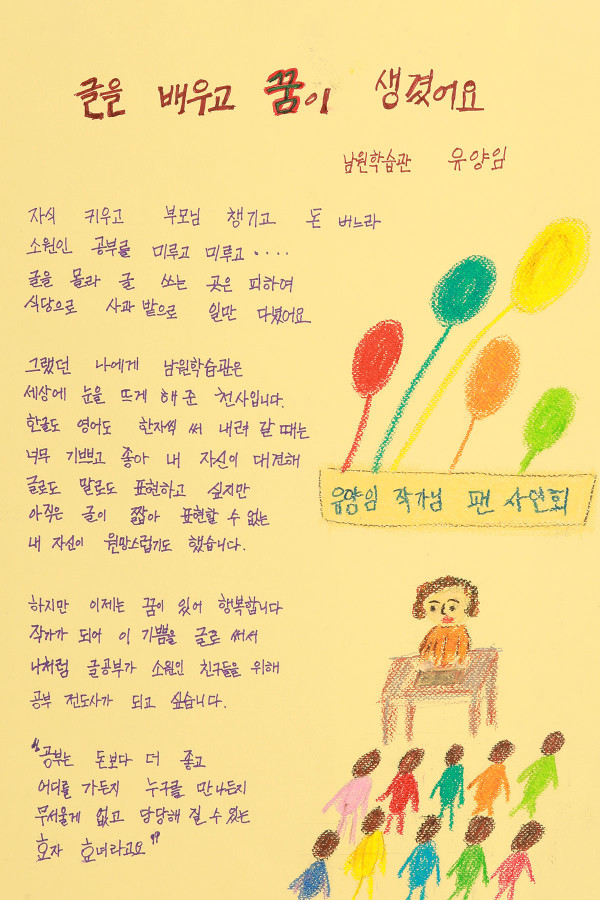 글을 배우고 꿈이 생겼어요
남원학습관 유양임
자식 키우고 부모님 챙기고 돈 버느라
소원인 공부를 미루고 미루고····
글을 몰라 글 쓰는 곳은 피하여
식당으로 사과밭으로 일만 다녔어요
그랬던 나에게 남원학습관은
세상에 눈을 뜨게 해 준 천사입니다.
한글도 영어도 한자씩 써 내려 갈 때는
너무 기쁘고 좋아 내 자신이 대견해
글로도 말로도 표현하고 싶지만
아직은 글이 짧아 표현할 수 없는
내 자신이 원망스럽기도 했습니다.
하지만 이제는 꿈이 있어 행복합니다
작가가 되어 이 기쁨을 글로 써서
나처럼 글공부가 소원인 친구들을 위해
공부 전도사가 되고 싶습니다.
"공부는 돈보다 더 좋고
어디를 가든지 누구를 만나든지
무서울게 없고 당당해 질 수 있는
효자 효녀라고요"
유양임 작가님 팬 사인회